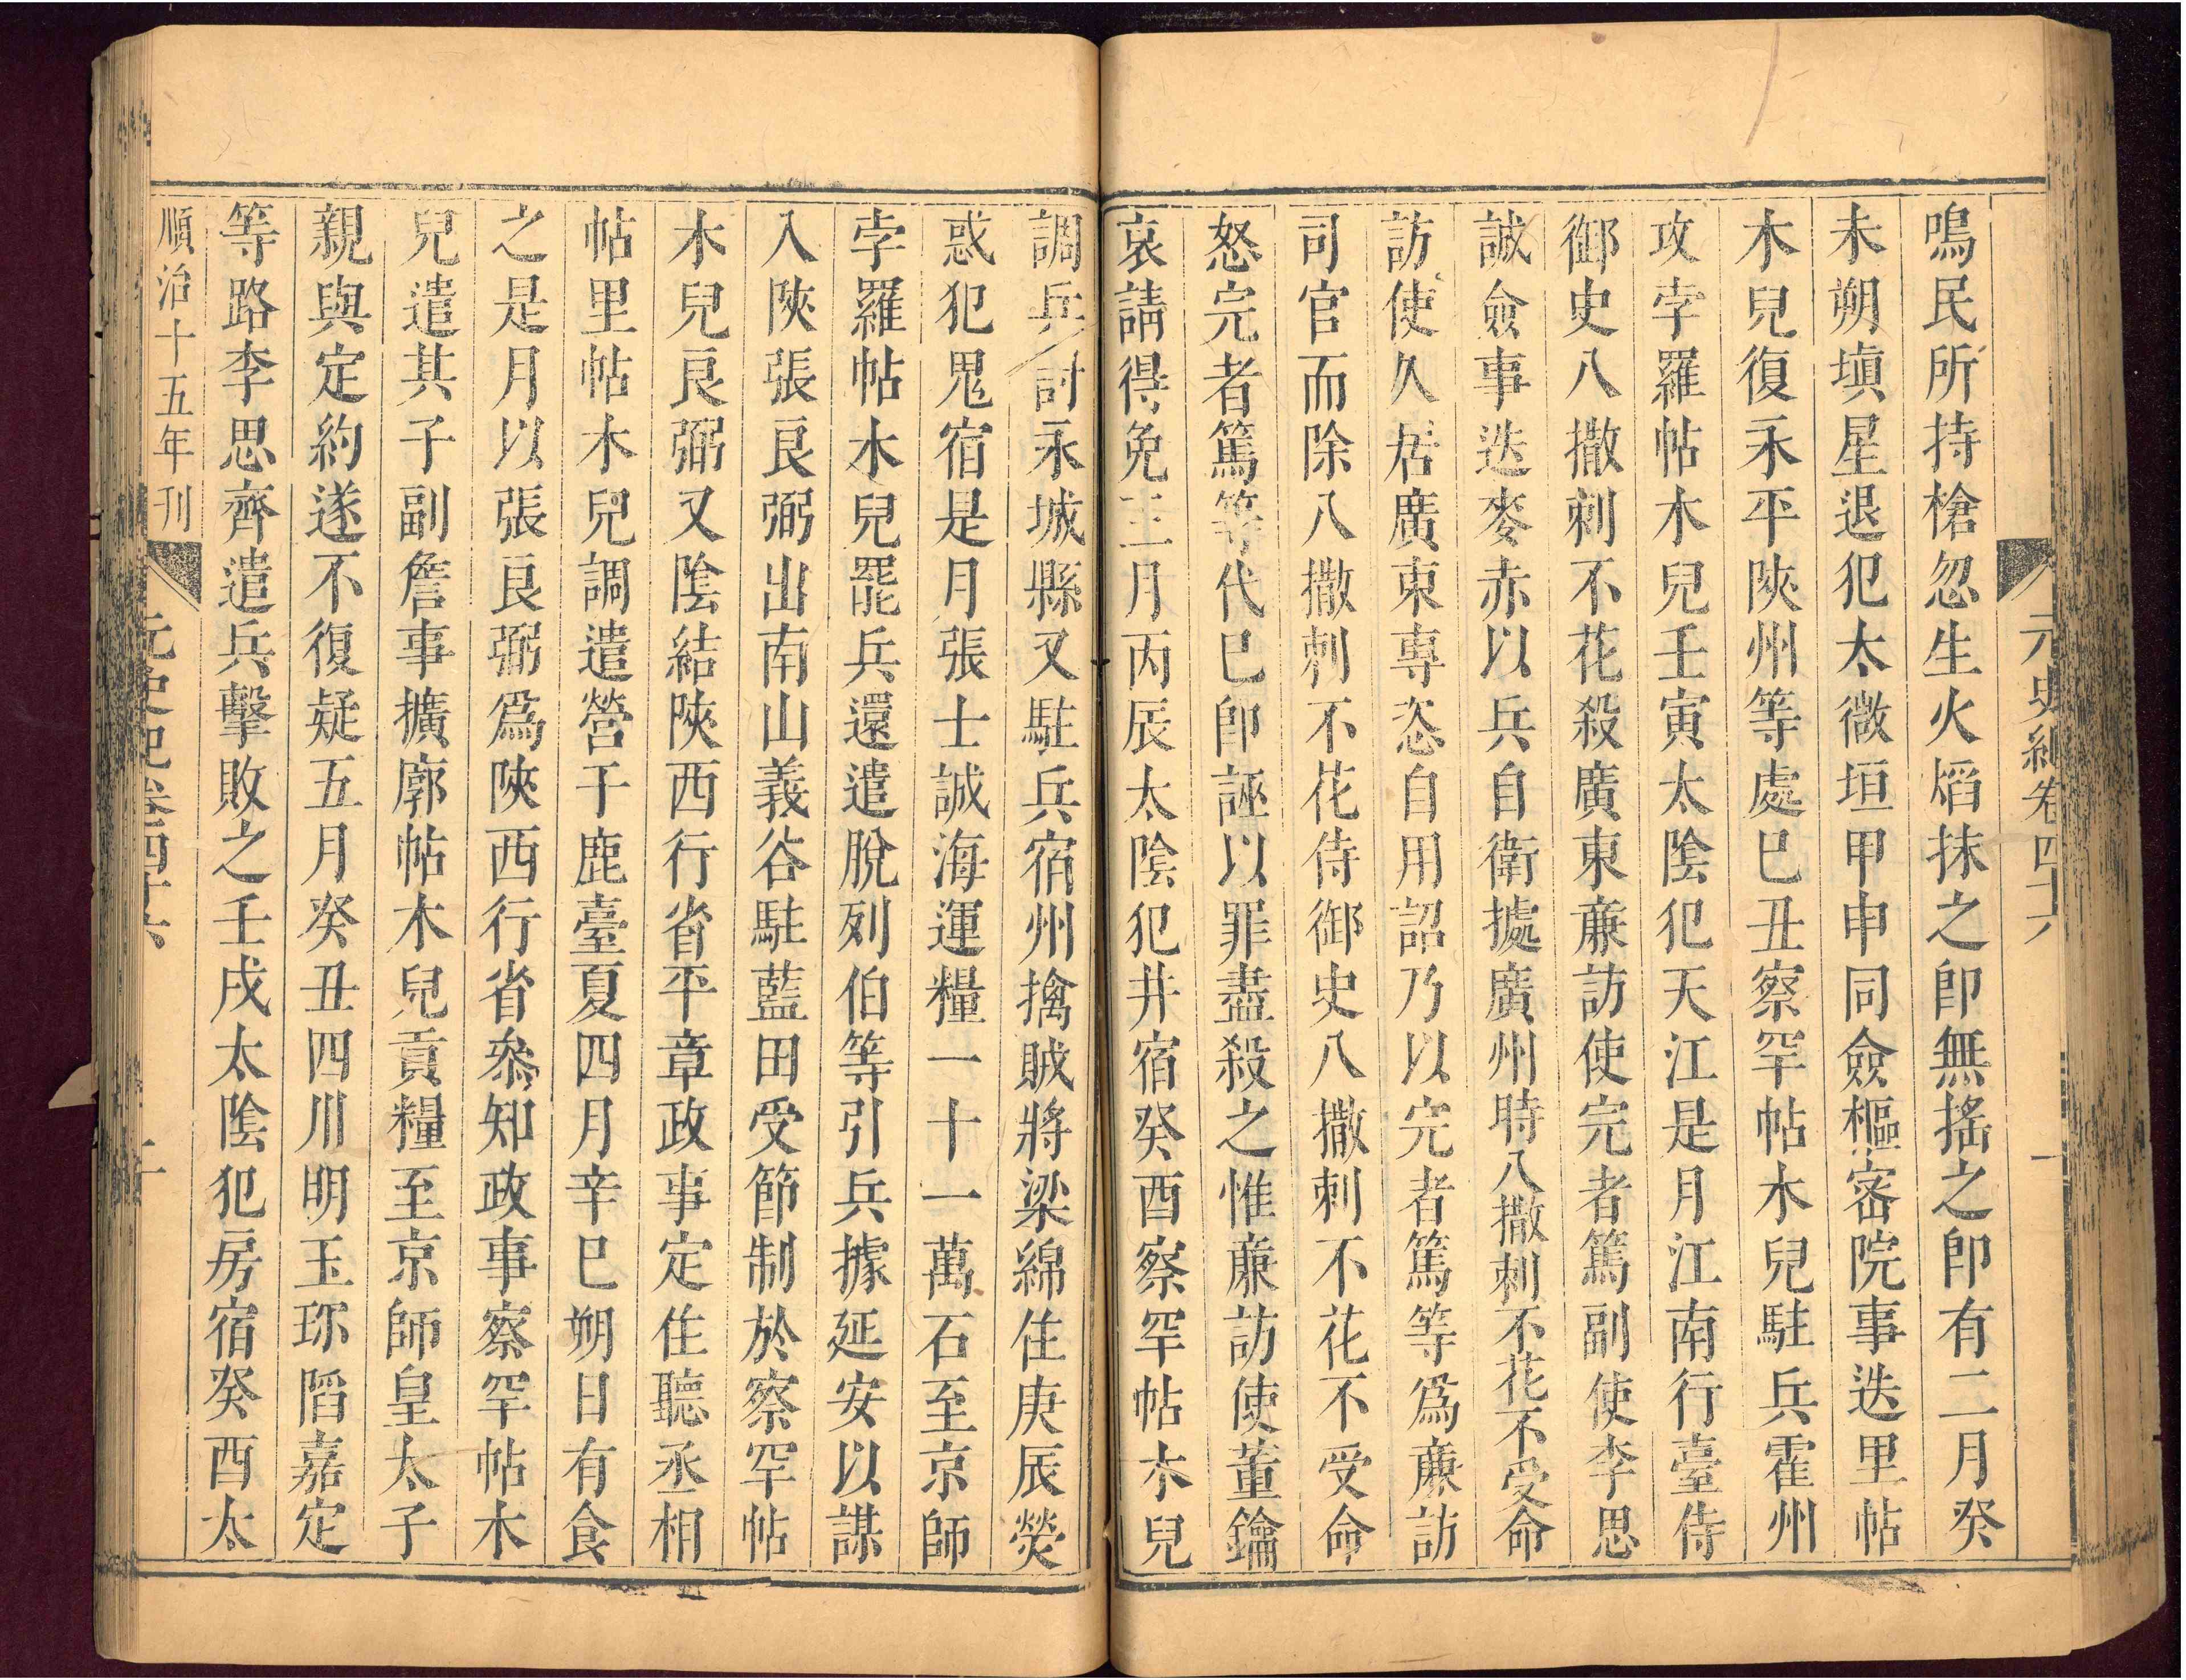 元史紀卷四十六 一
鳴民所持槍忽生火焰抹之即無搖之即有二月癸
未朔塡星退犯太微垣甲申同僉樞密院事迭里帖
木兒復永平陝州等處巳丑察罕帖木兒駐兵霍州
攻孛羅帖木兒壬寅太陰犯天江是月江南行臺侍
御史八撒剌不花殺廣東亷訪使完者篤副使李思
誠僉事迭麥赤以兵自衛據廣州時八撒剌不花不受命
訪使久居廣東專恣自用詔乃以完者篤等爲亷訪
司官而除八撒剌不花侍御史八撒剌不花不受命
怒完者篤等代巳卽誣以罪盡殺之惟亷訪使董鑰
哀請得免三月丙辰太陰犯井宿癸酉察罕帖木兒
調兵討永城縣又駐兵宿州擒賊將梁綿住庚辰熒
惑犯鬼宿是月張士誠海運糧一十一萬石至京師
孛羅帖木兒罷兵還遣脫列伯等引兵據延安以謀
入陝張良弼出南山義谷駐藍田受節制於察罕帖
木兒良弼又陰結陝西行省平章政事定住聽丞相
帖里帖木兒調遣營于鹿臺夏四月辛巳朔日有食
之是月以張良弼爲陝西行省叅知政事察罕帖木
兒遣其子副詹事擴廓帖木兒貢糧至京師皇太子
親與定約遂不復疑五月癸丑四川明玉珍陷嘉定
等路李思齊遣兵擊敗之壬戌太陰犯房宿癸酉太
順治十五年刊 元史紀卷四十六 二